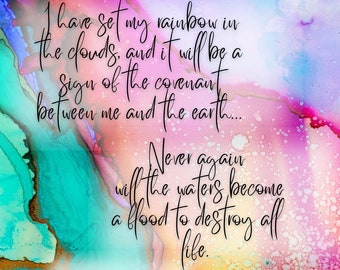 I have set my rainbow in
the clouds, and it will be a
sign of the covenant
between me and the earth...
Never again
will the waters become
a flood to destroy all
life.